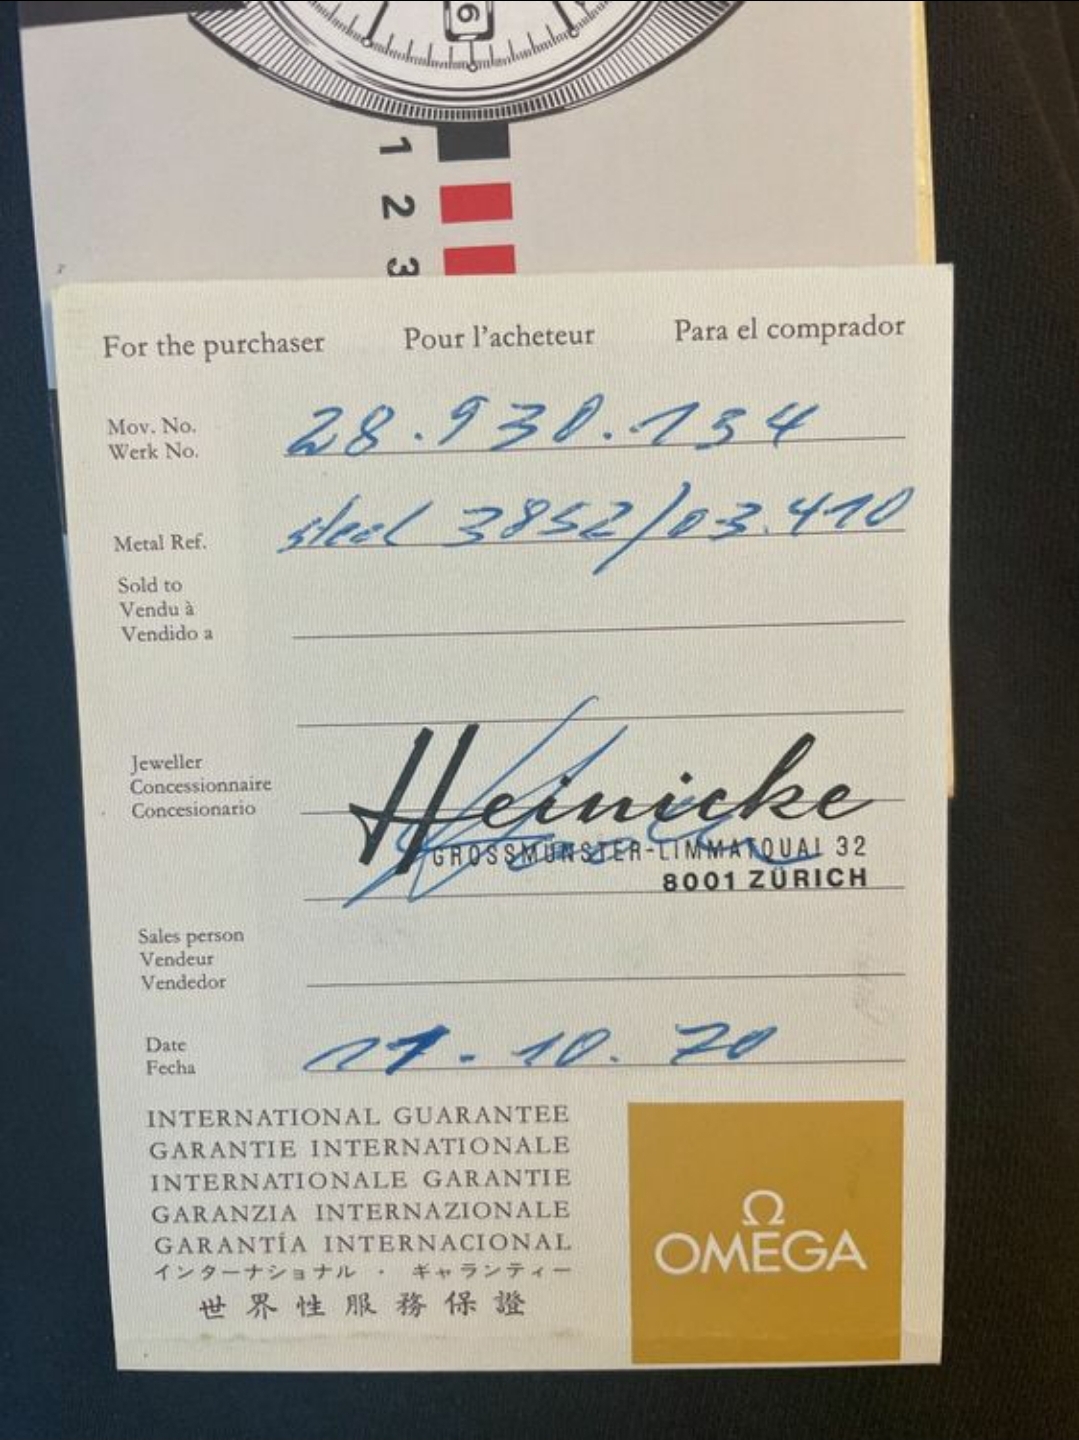 6
1
2
3
For the purchaser Pour l'acheteur Para el comprador
Mov. No.
Werk No.
28.930.134
Metal Ref.
steel 3852/03.410
Sold to
Vendu à
Vendido a
Jeweller
Concessionnaire
Concesionario
Heinicke
GROSSMÜNSTER-LIMMATQUAI 32
8001 ZÜRICH
Sales person
Vendeur
Vendedor
Date
Fecha
17.10.70
INTERNATIONAL GUARANTEE
GARANTIE INTERNATIONALE
INTERNATIONALE GARANTIE
GARANZIA INTERNAZIONALE
GARANTÍA INTERNACIONAL
インターナショナル・ギャランティー
世界性服務保證
Ω
OMEGA